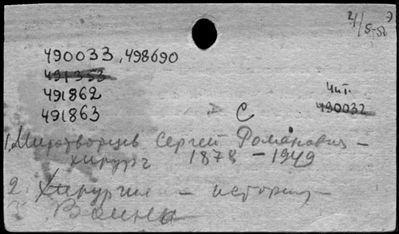 490033, 498690
491353
491862
491863
С
Чит.
490032
1. Миротворцев Сергей Романович –
хирург 1878 – 1949
2. Хирургия – история –
Войны